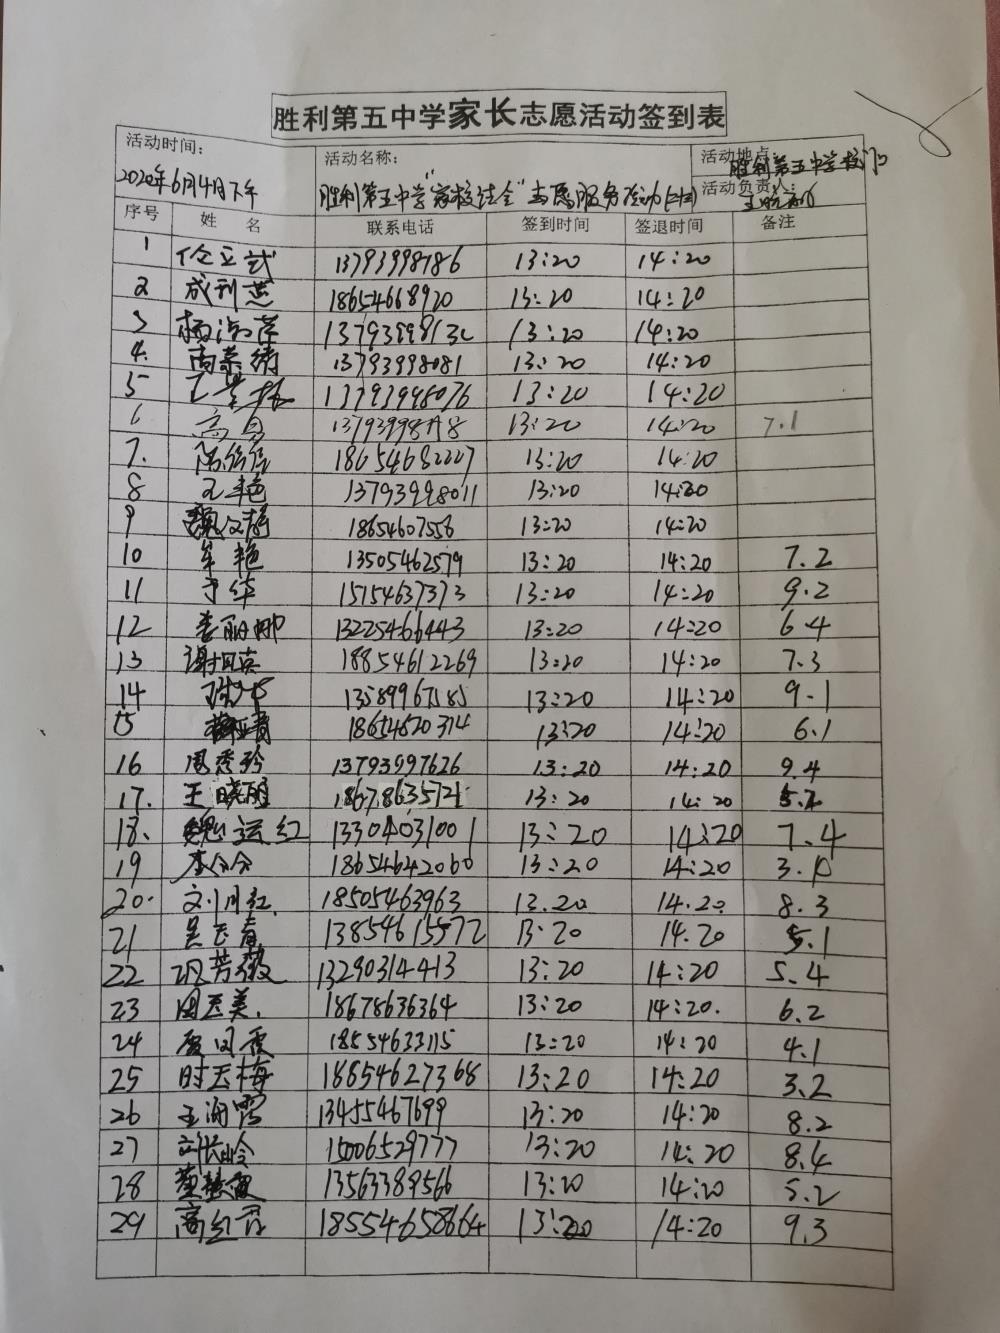 胜利第五中学家长志愿活动签到表
活动时间：
2020年6月4日下午
活动名称：
胜利第五中学"家校结合"志愿服务活动
活动地点：
胜利第五中学校门口
活动负责人：
序号 姓 名 联系电话 签到时间 签退时间 备注
1 13793998786 13:20 14:20
2 成利燕 18654668920 13:20 14:20
3 13:20 14:20
4. 13793998081 13:20 14:20
5 13793998076 13:20 14:20
6 高 13:20 14:20 7.1
7. 18654682227 13:20 14:20
8 王艳 13793998011 13:20 14:20
9 魏 18654607556 13:20 14:20
10 牟艳 13505462579 13:20 14:20 7.2
11 于华 15154637373 13:20 14:20 9.2
12 丽娜 13225466443 13:20 14:20 6.4
13 谢 英 18854612269 13:20 14:20 7.3
14 13589967585 13:20 14:20 9.1
15 18654620314 13:20 14:20 6.1
16 周秀玲 13793997626 13:20 14:20 9.4
17. 王晓丽 18678635721 13:20 14:20
18. 魏运红 13304031001 13:20 14:20 7.4
19 李分分 18654642060 13:20 14:20
20. 刘月红 18505463963 13.20 14.20 8.3
21 吴玉春 13854615572 13.20 14.20 5.1
22 芳 13290314413 13:20 14:20 5.4
23 周玉美. 18678636364 13:20 14:20. 6.2
24 夏风霞 18554633115 13:20 14:20 4.1
25 时玉梅 18854627368 13:20 14:20 3.2
26 王海霞 13455467699 13:20 14:20 8.2
27 15006529777 13:20 14:20 8.4
28 13563389566 13:20 14:20 5.2
29 高红霞 18554658664 13:20 14:20 9.3